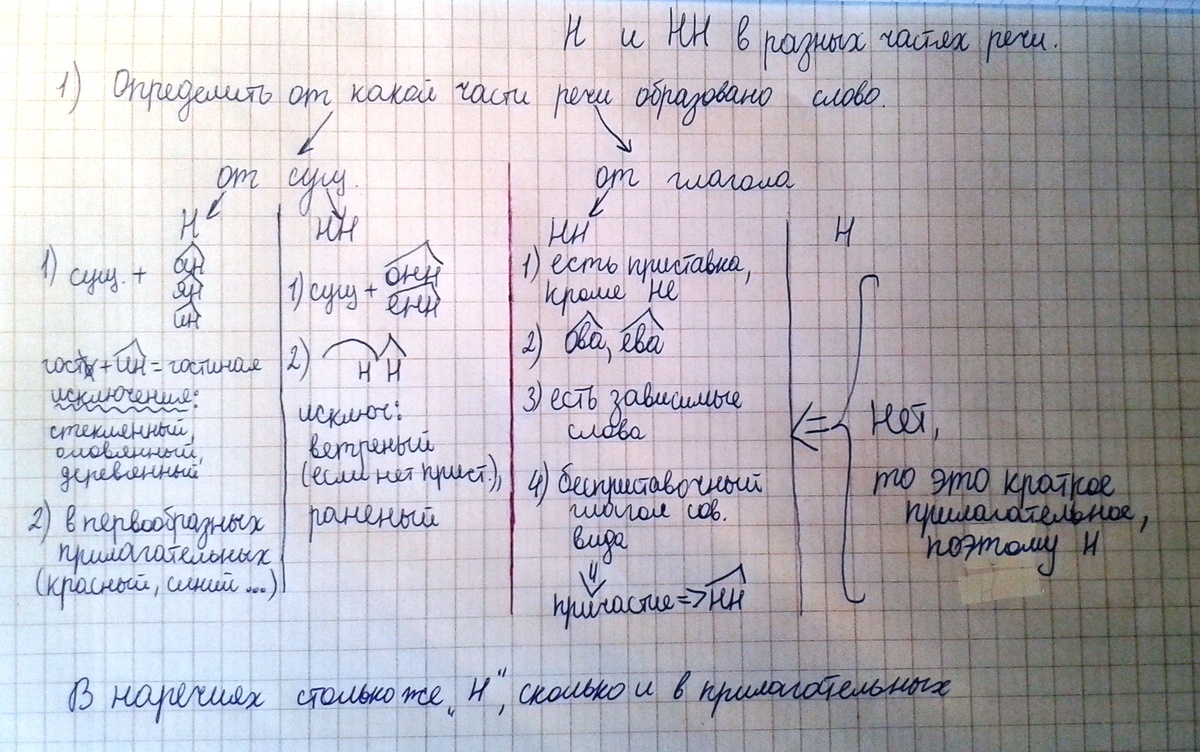 Н и НН в разных частях речи.
1) Определить от какой части речи образовано слово.
от сущ.
Н
1) сущ. + ан
ян
ин
гость + ин = гостиная
исключения:
стеклянный,
оловянный,
деревянный
2) в первообразных
прилагательных
(красный, синий ...)
НН
1) сущ + онн
енн
2) Н Н
исключ:
ветреный
(если нет прист.),
раненый
от глагола
НН
1) есть приставка,
кроме не
2) ова, ева
3) есть зависимые
слова
4) бесприставочный
глагол сов.
вида
причастие => НН
Н
<= Нет,
то это краткое
прилагательное,
поэтому Н
В наречиях столько же „Н", сколько и в прилагательных